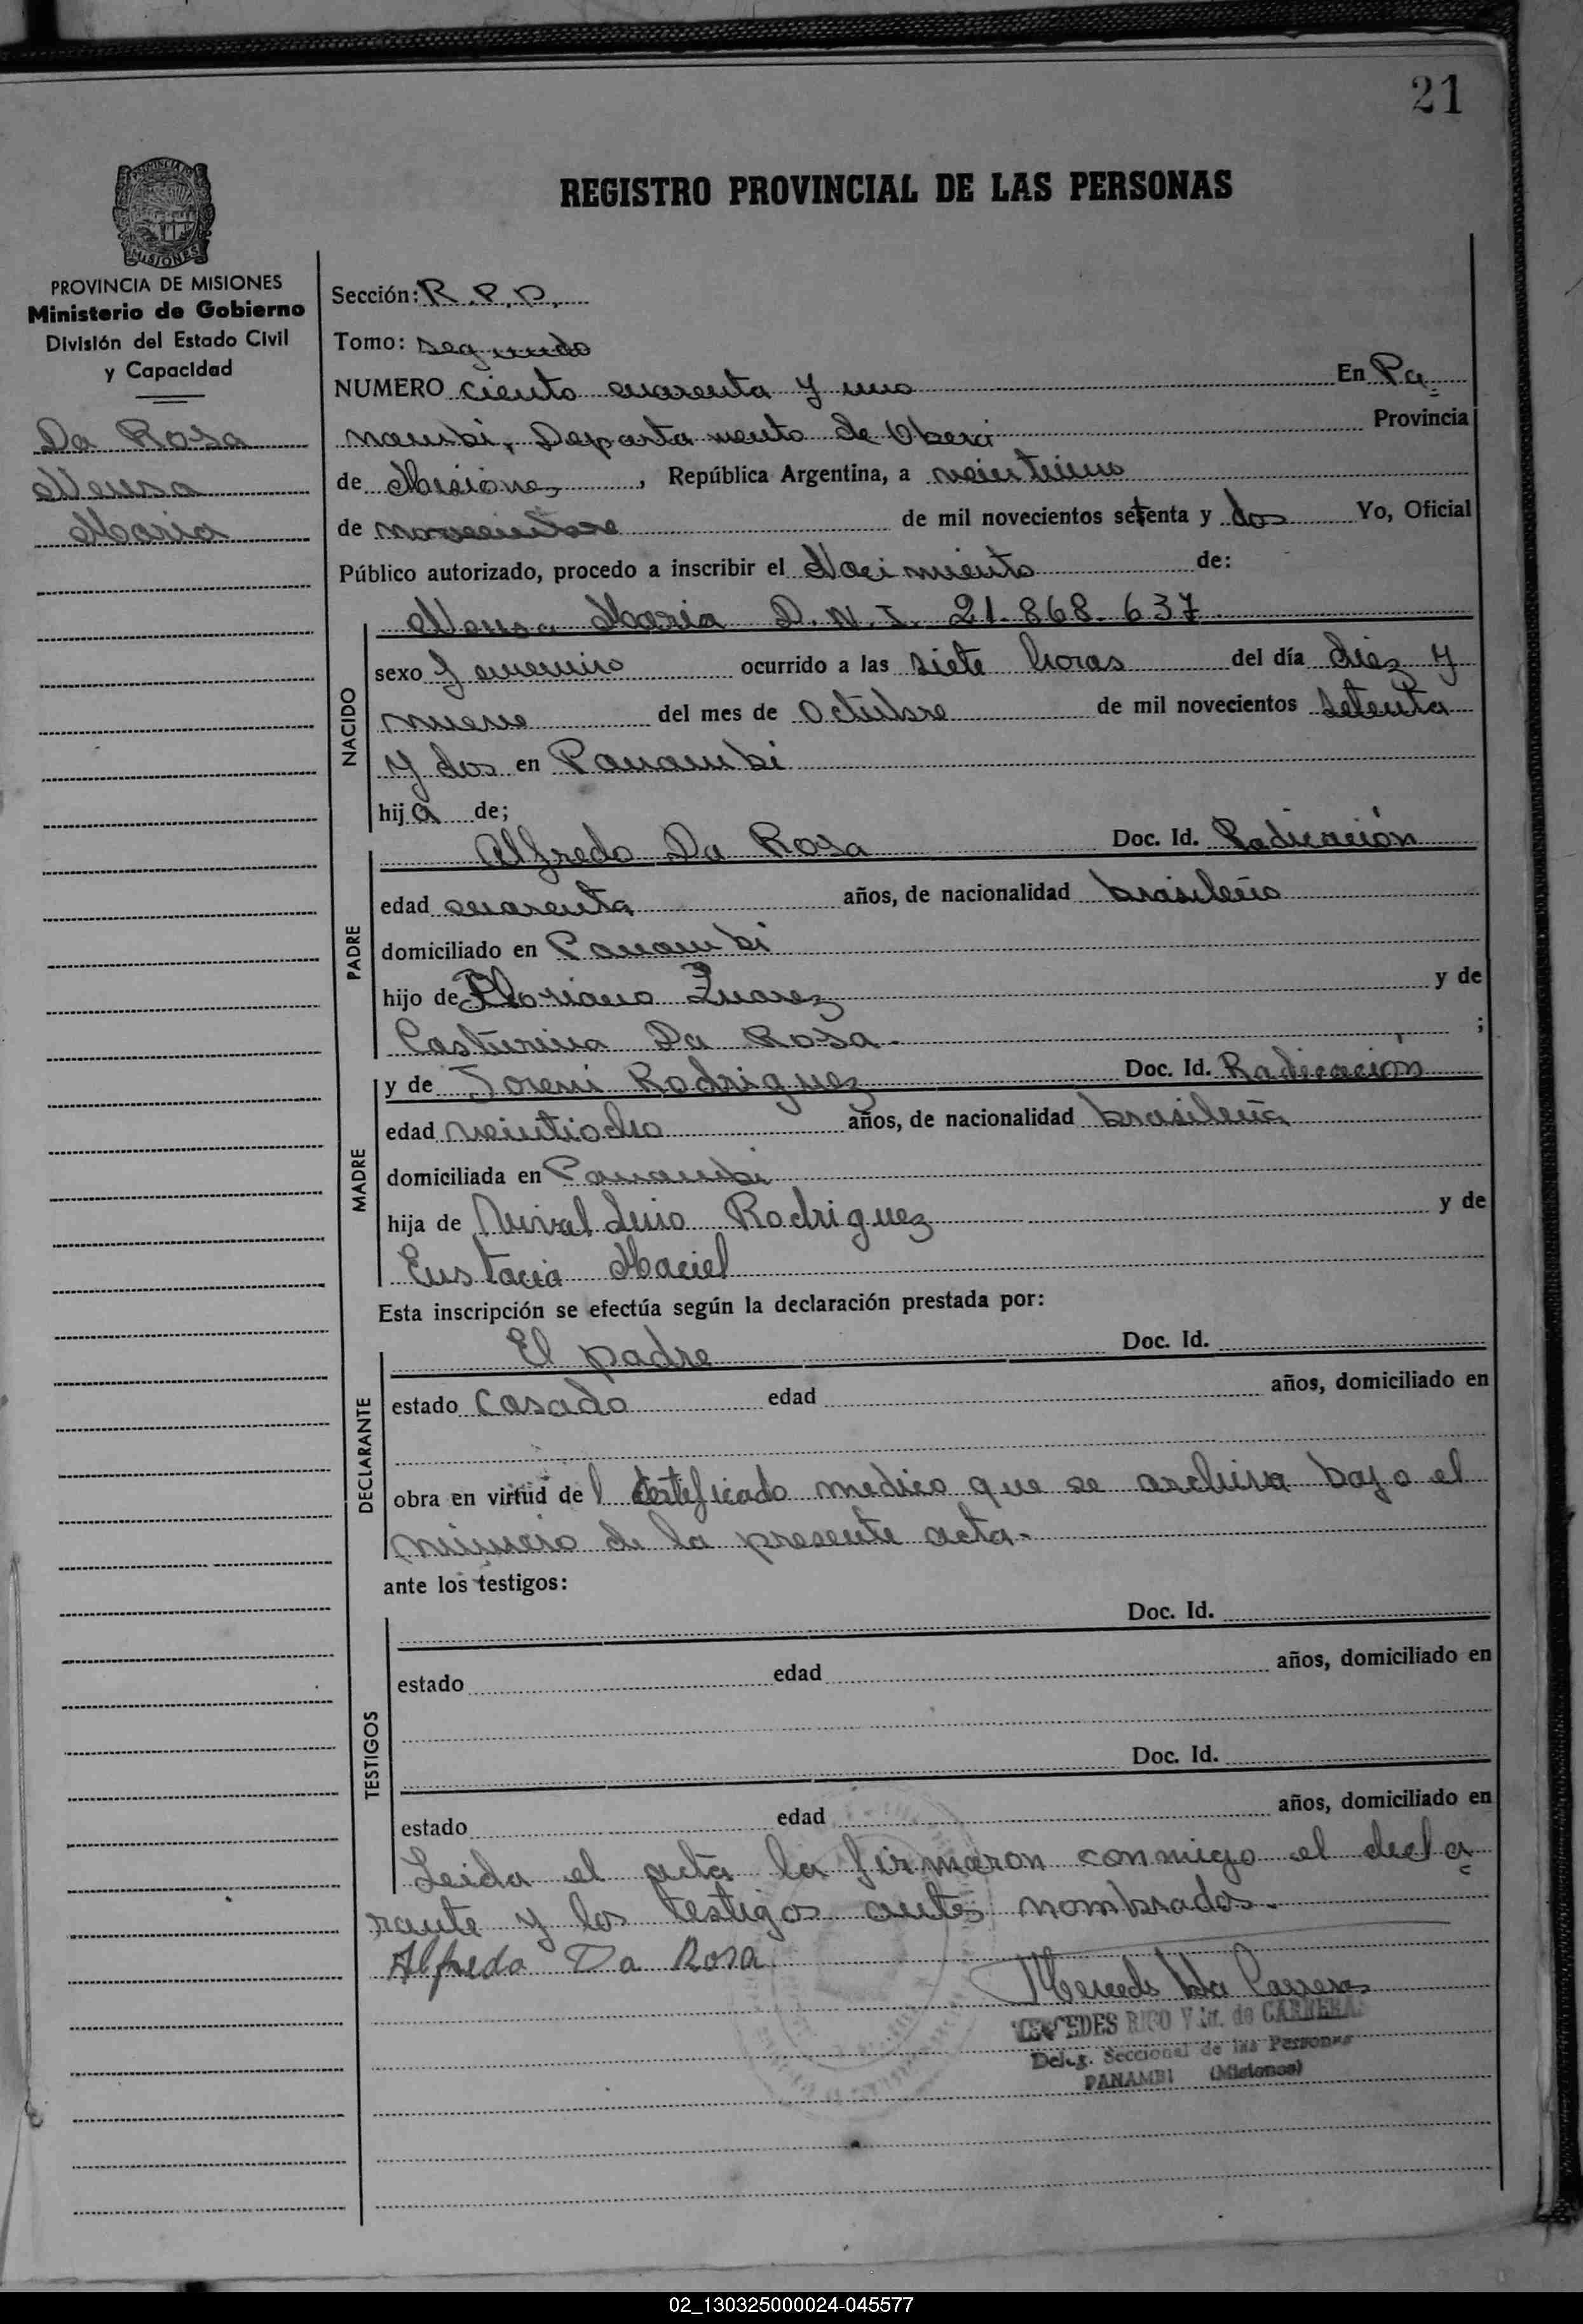 21
REGISTRO PROVINCIAL DE LAS PERSONAS
PROVINCIA DE MISIONES
Ministerio de Gobierno
División del Estado Civil
y Capacidad
Da Rosa
Neusa
Maria
Sección: R.P.P.
Tomo: segundo
NUMERO ciento cuarenta y uno En Pa
nambi, Departamento de Obera Provincia
de Misiones, República Argentina, a veintiuno
de noviembre de mil novecientos setenta y dos Yo, Oficial
Público autorizado, procedo a inscribir el Nacimiento de:
Neusa Maria D.N.I. 21.868.637
NACIDO
sexo femenino ocurrido a las siete horas del día diez y
nueve del mes de Octubre de mil novecientos setenta
y dos en Panambi
hija de;
PADRE
Alfredo Da Rosa Doc. Id. Radicación
edad cuarenta años, de nacionalidad brasileño
domiciliado en Panambi
hijo de Floriano y de
Casturina Da Rosa. ;
MADRE
y de Joreni Rodriguez Doc. Id. Radicación
edad veintiocho años, de nacionalidad brasileña
domiciliada en Panambi
hija de Rodriguez y de
Eustacia Maciel
Esta inscripción se efectúa según la declaración prestada por:
DECLARANTE
El padre Doc. Id.
estado casado edad años, domiciliado en
obra en virtud del certificado medico que se archiva bajo el
número de la presente acta.
ante los testigos:
TESTIGOS
Doc. Id.
estado edad años, domiciliado en
Doc. Id.
estado edad años, domiciliado en
Leida el acta la firmaron conmigo el decla
rante y los testigos antes nombrados.
Alfredo Da Rosa
Mercedes Carrera
MERCEDES RICO Vda. de CARRERA
Deleg. Seccional de las Personas
PANAMBI (Misiones)
02_130325000024-045577